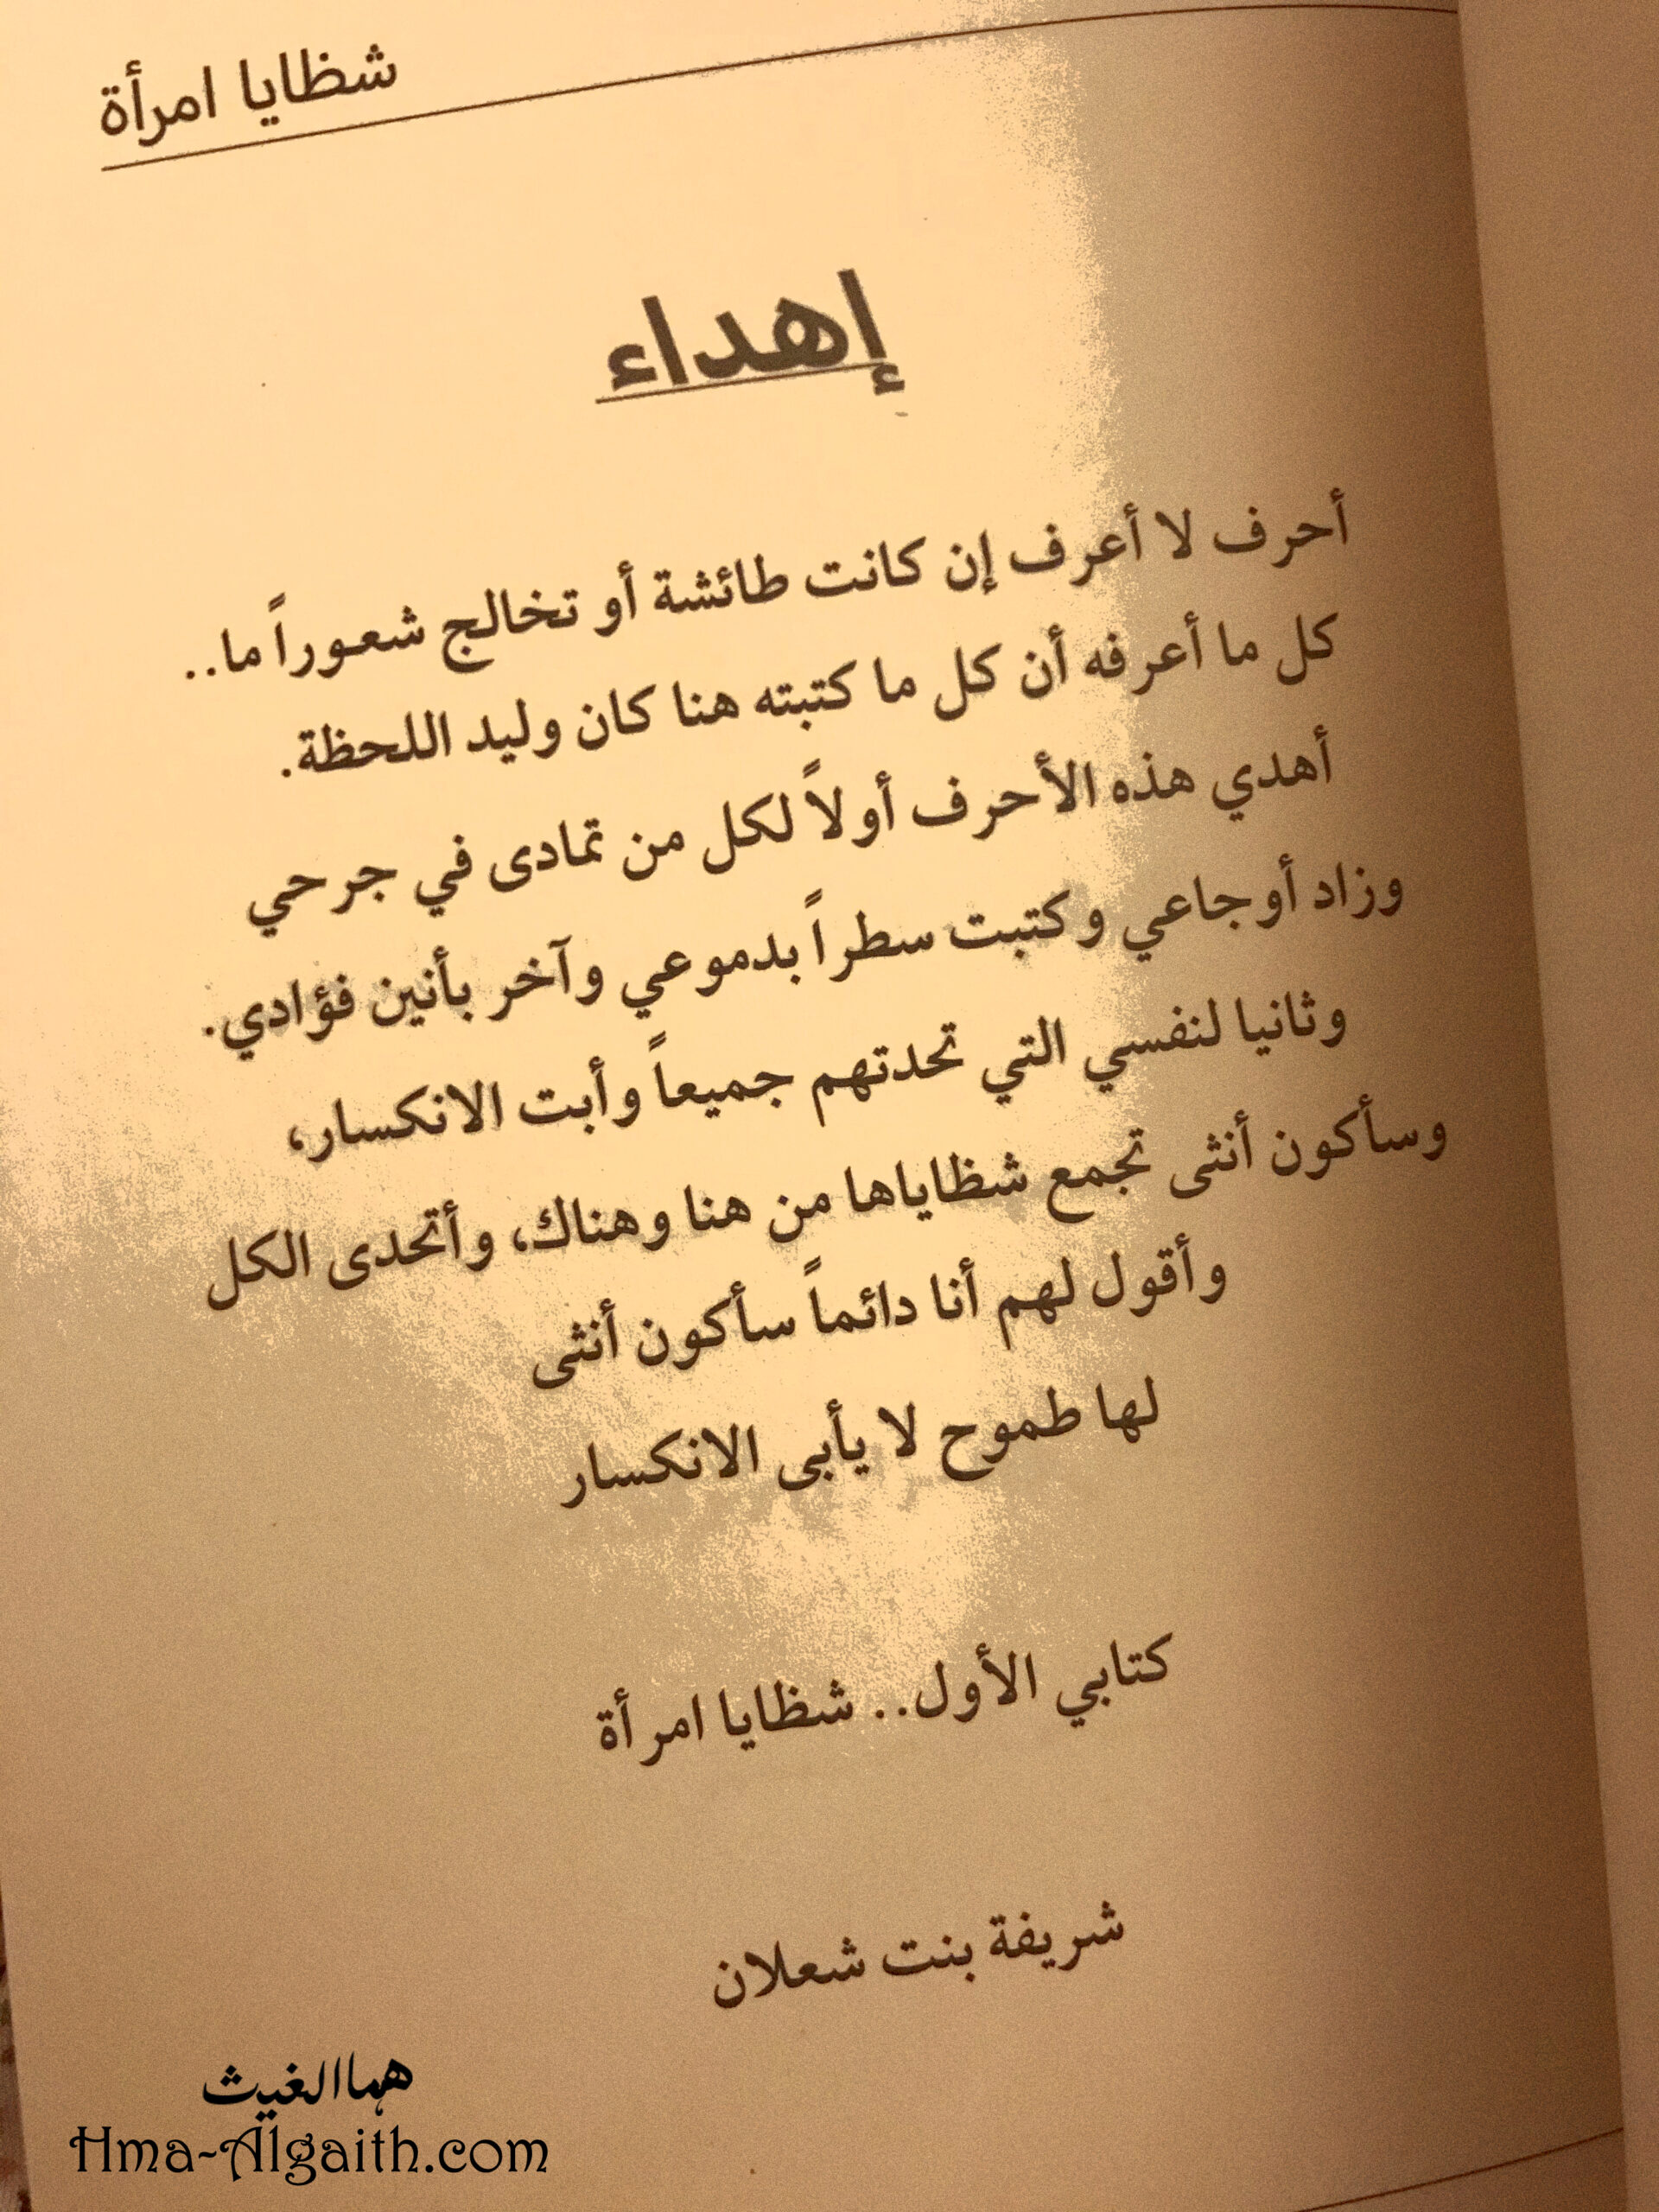 شظايا امرأة
إهداء
أحرف لا أعرف إن كانت طائشة أو تخالج شعوراً ما..
كل ما أعرفه أن كل ما كتبته هنا كان وليد اللحظة.
أهدي هذه الأحرف أولاً لكل من تمادى في جرحي
وزاد أوجاعي وكتبت سطراً بدموعي وآخر بأنين فؤادي.
وثانيا لنفسي التي تحدتهم جميعاً وأبت الانكسار،
وسأكون أنثى تجمع شظاياها من هنا وهناك، وأتحدى الكل
وأقول لهم أنا دائماً سأكون أنثى
لها طموح لا يأبى الانكسار
كتابي الأول.. شظايا امرأة
شريفة بنت شعلان
هما الغيث
Hma-Algaith.com